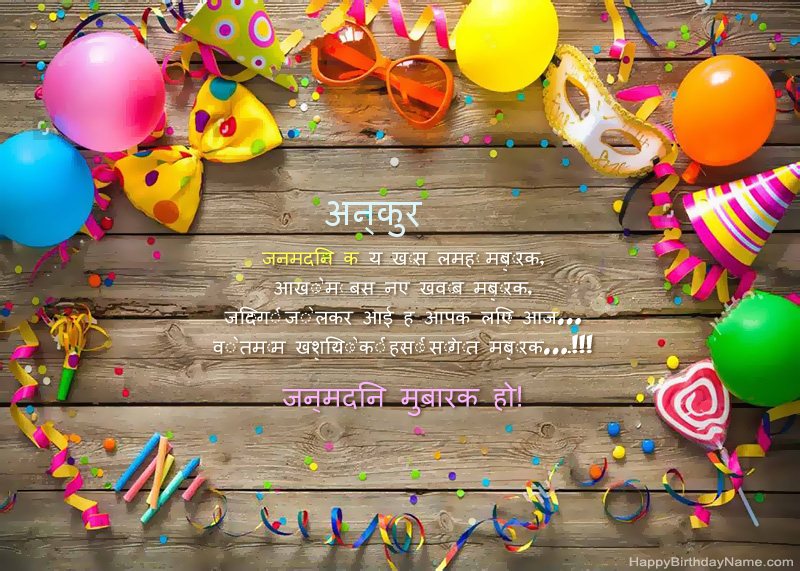 अन्कुर
जन्मदिन के ये ख़ास लम्हें मुबारक,
आँखों में बसे नए ख्वाब मुबारक,
जिंदगी जो लेकर आई है आपके लिए आज...
वो तमाम खुशियों की हंसीं सौगात मुबारक...!!!
जन्मदिन मुबारक हो!
HappyBirthdayName.com